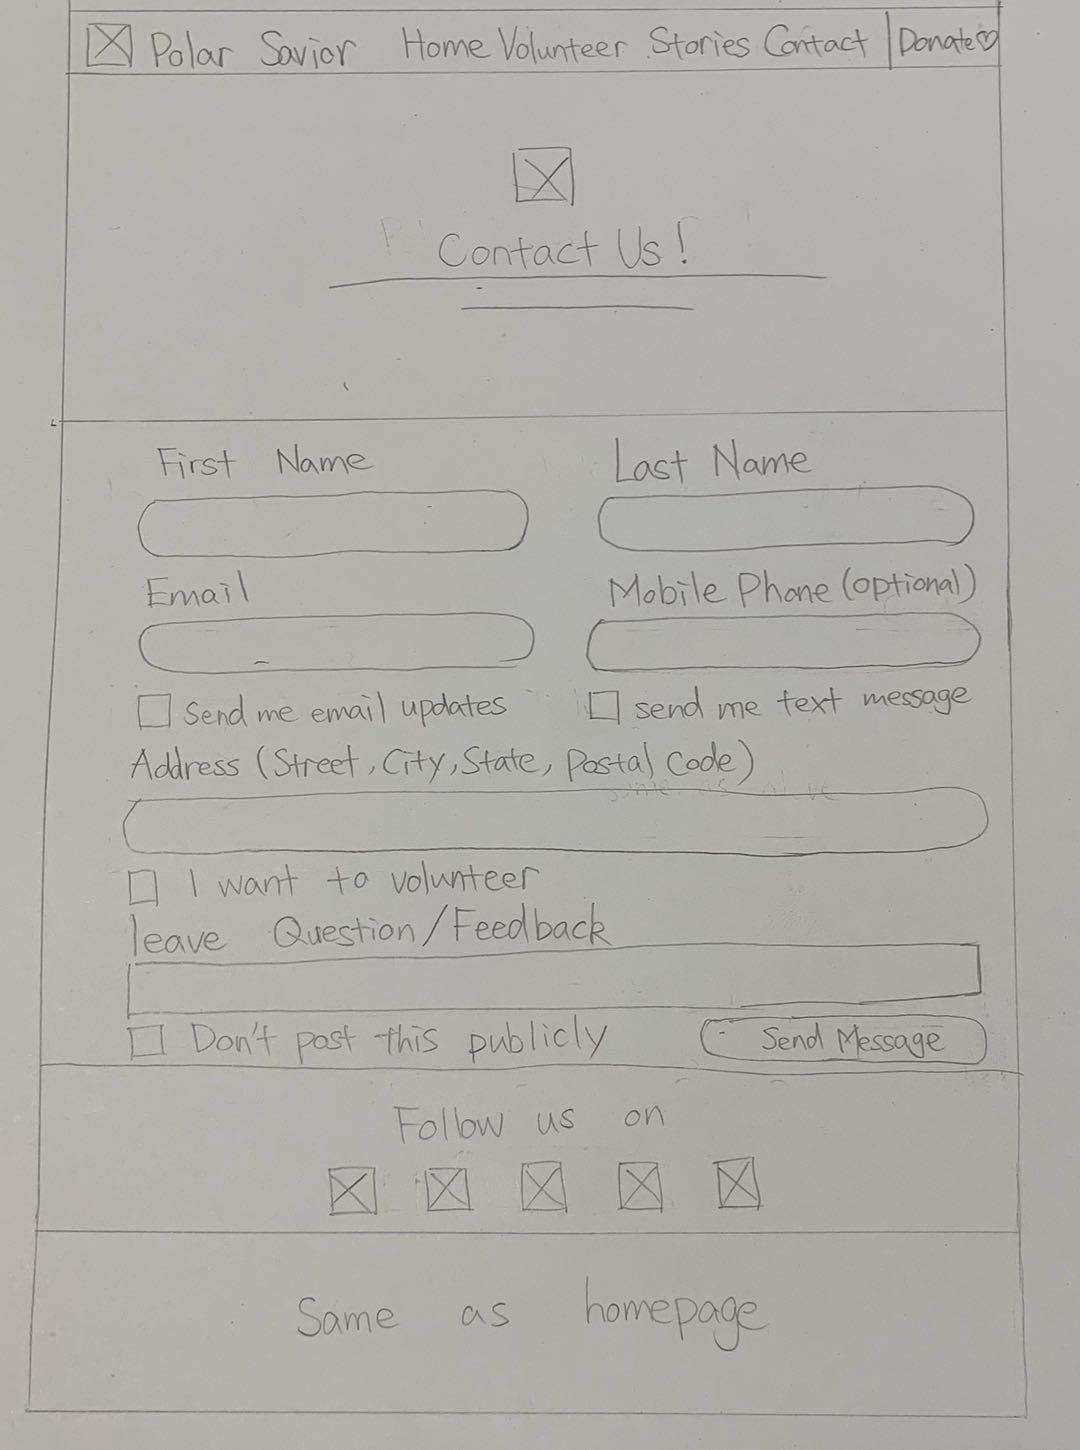 Polar Savior Home Volunteer Stories Contact Donate♡
Contact Us!
First Name Last Name
Email Mobile Phone (optional)
Send me email updates send me text message
Address (Street, City, State, Postal Code)
I want to volunteer
leave Question/Feedback
Don't post this publicly Send Message
Follow us on
Same as homepage